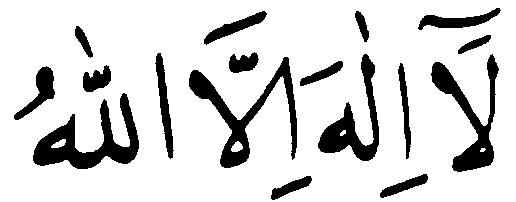 لَآ اِلٰهَ اِلَّا اللّٰهُ